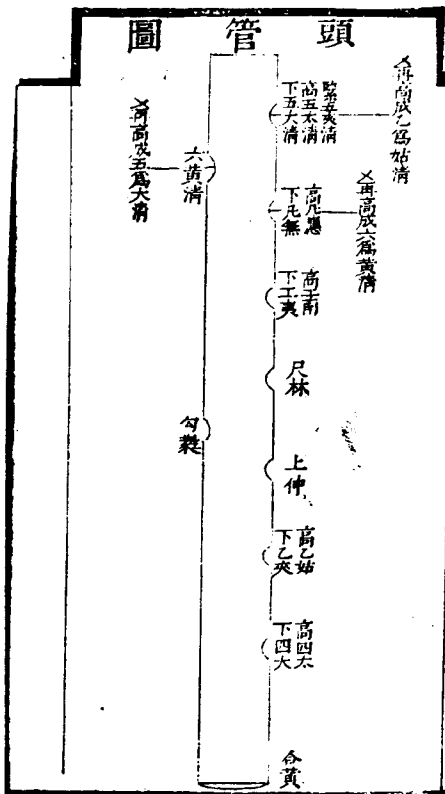 頭管圖
又再高成乙爲姑清
緊五夾清
高五太清
下五大清
又再高成六爲黃清
高凡應
下凡無
高工南
下工夷
尺林
上仲
高乙姑
下乙夾
高四太
下四大
合黃
六黃清
勾蕤
又再高成五爲大清